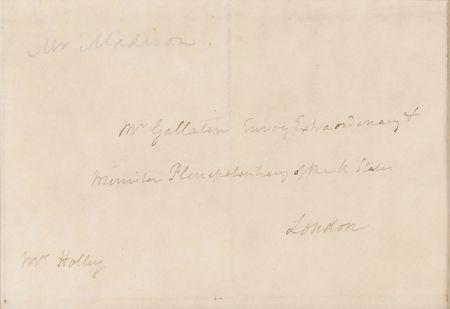 Mr Madison.
Mr Gallatin Envoy Extraordinary &
Minister Plenipotentiary of the U States
London
Mr Holley